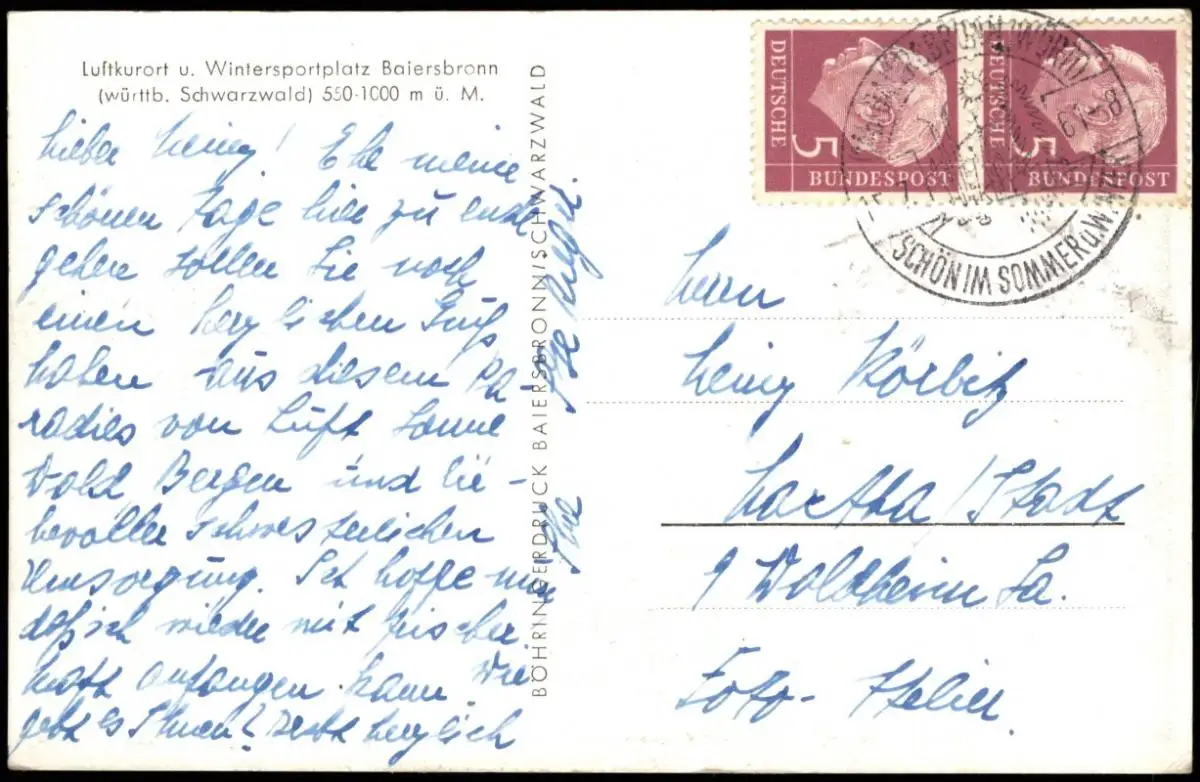 Luftkurort u. Wintersportplatz Baiersbronn
(württb. Schwarzwald) 550-1000 m ü. M.
Lieber Heinz! Ehe meine
schönen Tage hier zu ende
gehen sollen Sie noch
einen herzlichen Gruß
haben aus diesem Pa-
radies von Luft Sonne
Wald Bergen und lie-
bevoller schwesterlichen
Umsorgung. Ich hoffe nun
daß ich wieder mit frischer
Kraft anfangen kann. Wie
geht es Ihnen? Recht herzlich
Ihre
BÖHRINGERDRUCK BAIERSBRONN I SCHWARZWALD
DEUTSCHE
5
BUNDESPOST
DEUTSCHE
5
BUNDESPOST
SCHÖN IM SOMMER u. W
Herrn
Heinz Körbitz
Hartha / Stadt
Waldheim Sa.
Foto- Atelier.